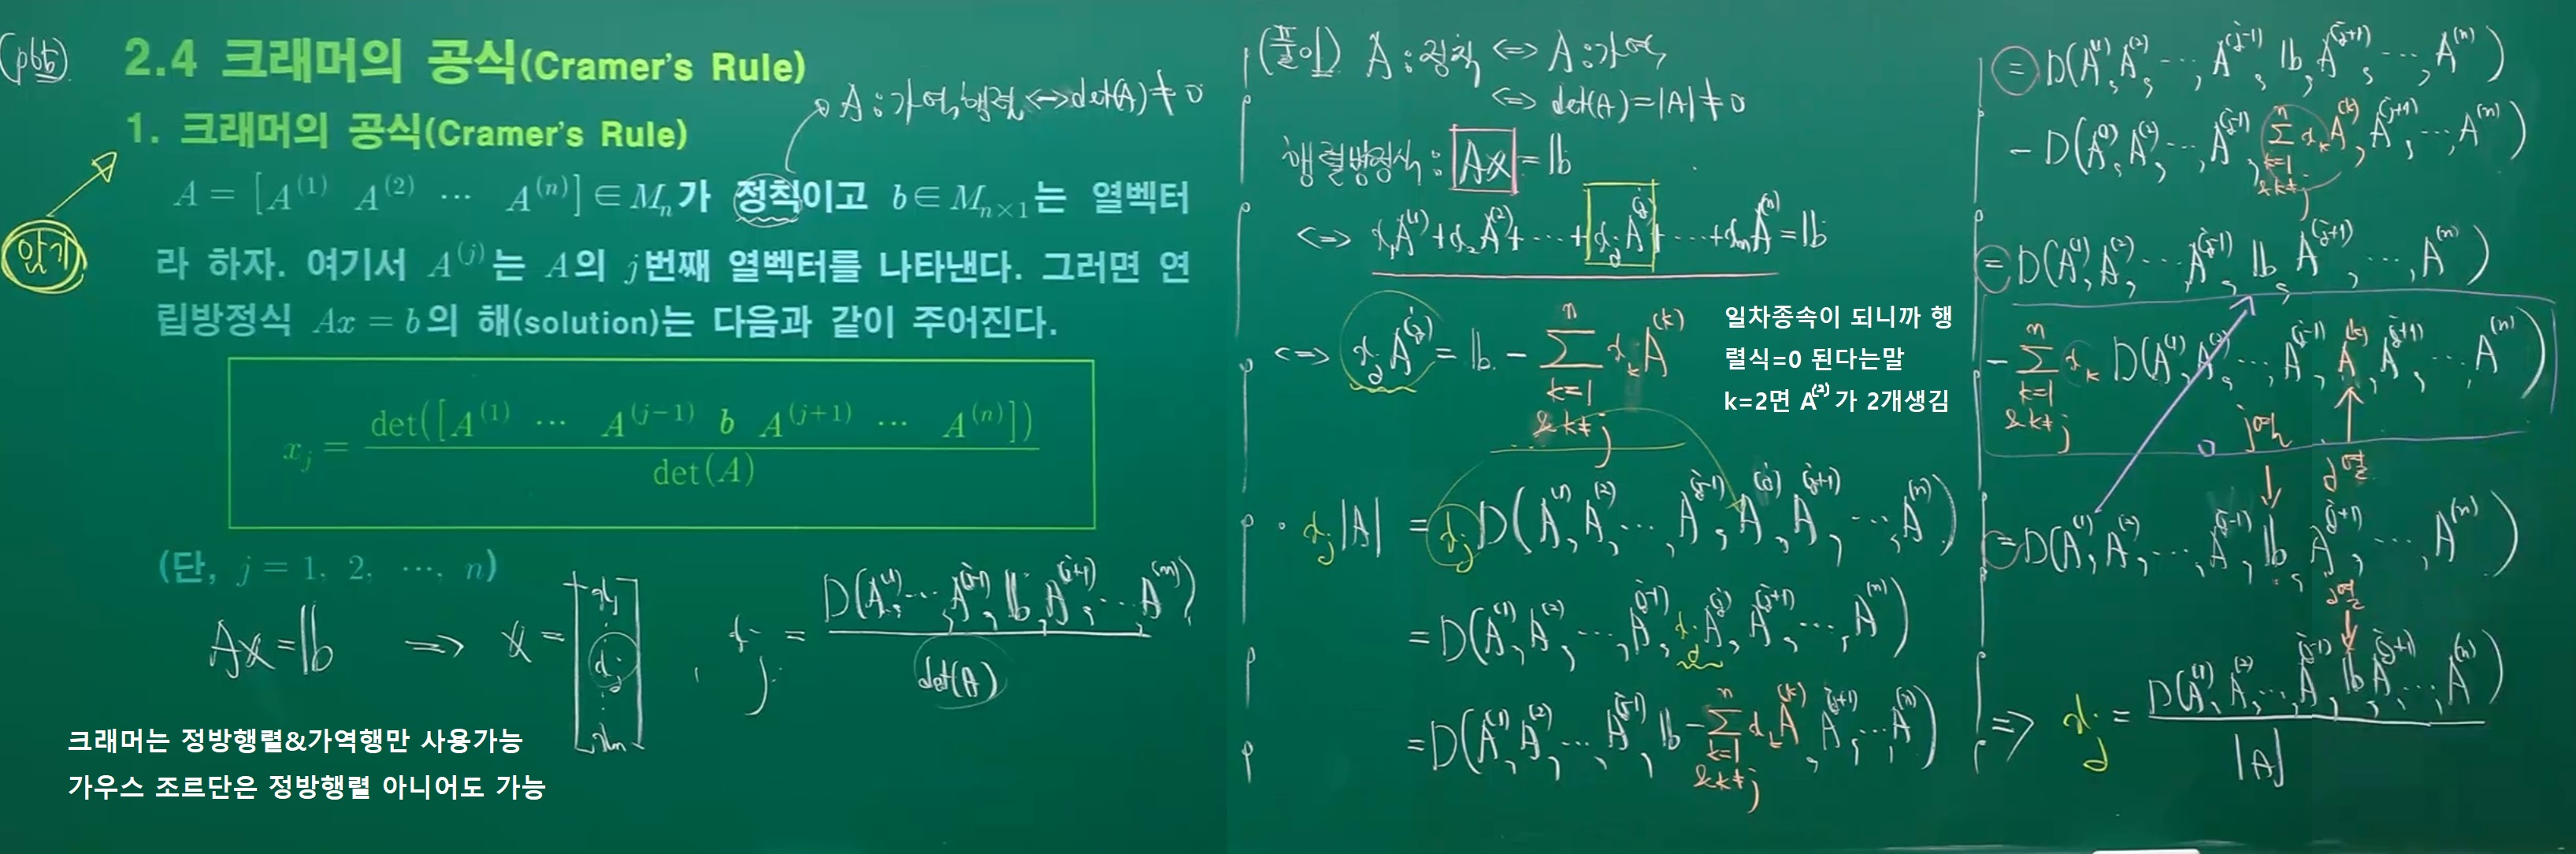 (p66)
2.4 크래머의 공식(Cramer's Rule)
1. 크래머의 공식(Cramer's Rule)
A : 가역행렬 <=> det(A) ≠ 0
암기
A = [A^(1) A^(2) ⋯ A^(n)] ∈ M_n가 정칙이고 b ∈ M_{n×1}는 열벡터
라 하자. 여기서 A^(j)는 A의 j번째 열벡터를 나타낸다. 그러면 연
립방정식 Ax = b의 해(solution)는 다음과 같이 주어진다.
x_j = det([A^(1) ⋯ A^(j-1) b A^(j+1) ⋯ A^(n)]) / det(A)
(단, j = 1, 2, ⋯, n)
Ax = b => x = [x_1 ⋮ x_j ⋮ x_n], x_j = D(A^(1), ⋯, A^(j-1), b, A^(j+1), ⋯, A^(n)) / det(A)
크래머는 정방행렬&가역행만 사용가능
가우스 조르단은 정방행렬 아니어도 가능
(풀이) A : 정칙 <=> A : 가역
<=> det(A) = |A| ≠ 0
행렬방정식 : Ax = b
<=> x_1A^(1) + x_2A^(2) + ⋯ + x_jA^(j) + ⋯ + x_nA^(n) = b
<=> x_jA^(j) = b - Σ_{k=1 & k≠j}^{n} x_kA^(k)
일차종속이 되니까 행
렬식=0 된다는말
k=2면 A^(2)가 2개생김
· x_j|A| = x_jD(A^(1), A^(2), ⋯, A^(j-1), A^(j), A^(j+1), ⋯, A^(n))
= D(A^(1), A^(2), ⋯, A^(j-1), x_jA^(j), A^(j+1), ⋯, A^(n))
= D(A^(1), A^(2), ⋯, A^(j-1), b - Σ_{k=1 & k≠j}^{n} x_kA^(k), A^(j+1), ⋯, A^(n))
= D(A^(1), A^(2), ⋯, A^(j-1), b, A^(j+1), ⋯, A^(n))
- D(A^(1), A^(2), ⋯, A^(j-1), Σ_{k=1 & k≠j}^{n} x_kA^(k), A^(j+1), ⋯, A^(n))
= D(A^(1), A^(2), ⋯, A^(j-1), b, A^(j+1), ⋯, A^(n))
- Σ_{k=1 & k≠j}^{n} x_k D(A^(1), A^(2), ⋯, A^(j-1), A^(k), A^(j+1), ⋯, A^(n))
0
j열
= D(A^(1), A^(2), ⋯, A^(j-1), b, A^(j+1), ⋯, A^(n))
j열
=> x_j = D(A^(1), A^(2), ⋯, A^(j-1), b, A^(j+1), ⋯, A^(n)) / |A|